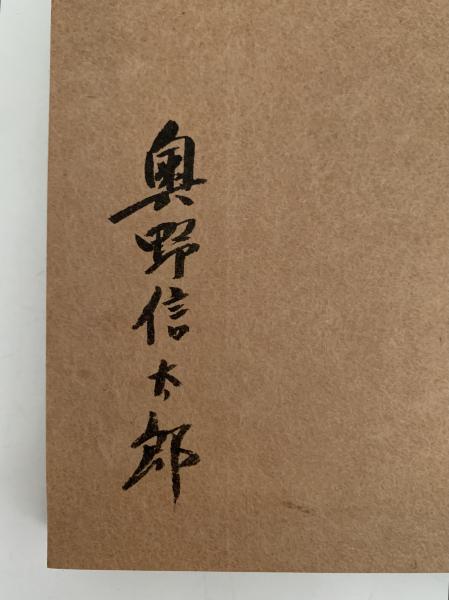 奥野信太郎